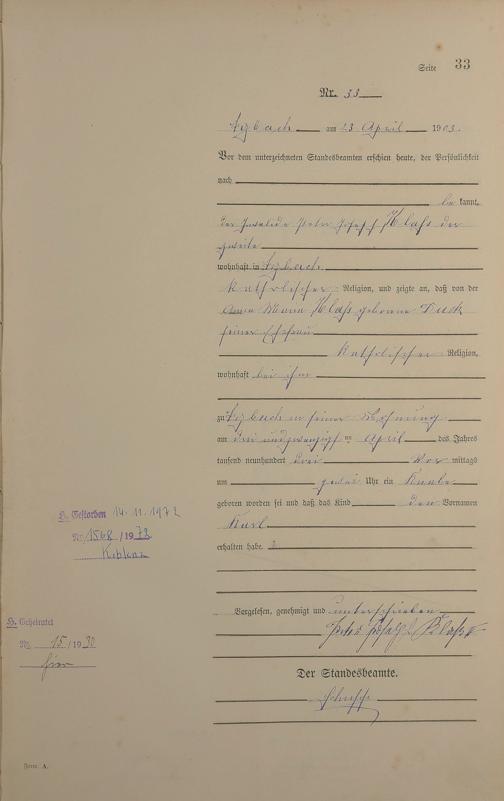 Seite 33
Nr. 33
am 23 April 1903.
Vor dem unterzeichneten Standesbeamten erschien heute, der Persönlichkeit
nach
be kannt,
der Invalide Peter Josef Klass der
zweite
wohnhaft in
katholischer Religion, und zeigte an, daß von der
Anna Maria Klass geborene
seiner Ehefrau
katholischer Religion,
wohnhaft bei ihm
zu in seiner Wohnung
am drei und zwanzigsten April des Jahres
tausend neunhundert drei Vor mittags
um Uhr ein Knabe
geboren worden sei und daß das Kind den Vornamen
Karl
erhalten habe.
Vorgelesen, genehmigt und unterschrieben
Peter Josef
Der Standesbeamte.
H. Gestorben 14.11.1972
Nr. 1568/1972
Koblenz
H. Geheiratet
Nr. 15/1930
hier
Form. A.